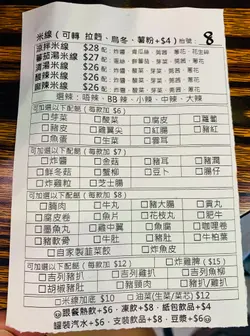 米線（可轉 拉麵、烏冬、薯粉+$4）枱號：8
涼拌米線 $28 配：炸醬
蕃茄湯米線 $27 配：
清湯米線 $26 配：
酸辣米線 $26 配：炸醬
麻辣米線 $26 配：炸醬
選辣：唔辣、BB辣、小辣、中辣、大辣
可加選以下配餸（每款加 $6）
□芽菜 □酸菜 □腐皮 □蘿蔔
□豬皮 □雞翼尖 □紅腸 □豬紅
□魚蛋 □生菜 □腸耳
可加選以下配餸（每款加 $7）
□炸醬 □金菇 □豬耳 □豬潤
□鮮冬菇 □蟹柳 □豆卜 □腸仔
□炸雞粒 □芝士腸
可加選以下配餸（每款加 $8）
□腩肉 □牛丸 □豬大腸 □貢丸
□腐皮卷 □魚片 □花枝丸 □肥牛
□墨魚丸 □雞中翼 □雲吞 □牛柏葉
□豬軟骨 □牛肚 □豬肚
□自家製韮菜餃 □炸魚皮
可加選以下配餸（每款加 $12）
□吉列豬扒 □吉列雞扒
□胡椒豬肚 □豬頸肉 □豬扒/雞扒
□米線加底 $10 □油菜(生菜/菜芯) $12
◎跟餐熱飲+$6、凍飲+$8、紙包飲品+$4
罐裝汽水+$6、支裝飲品+$8、豆漿+$6◎